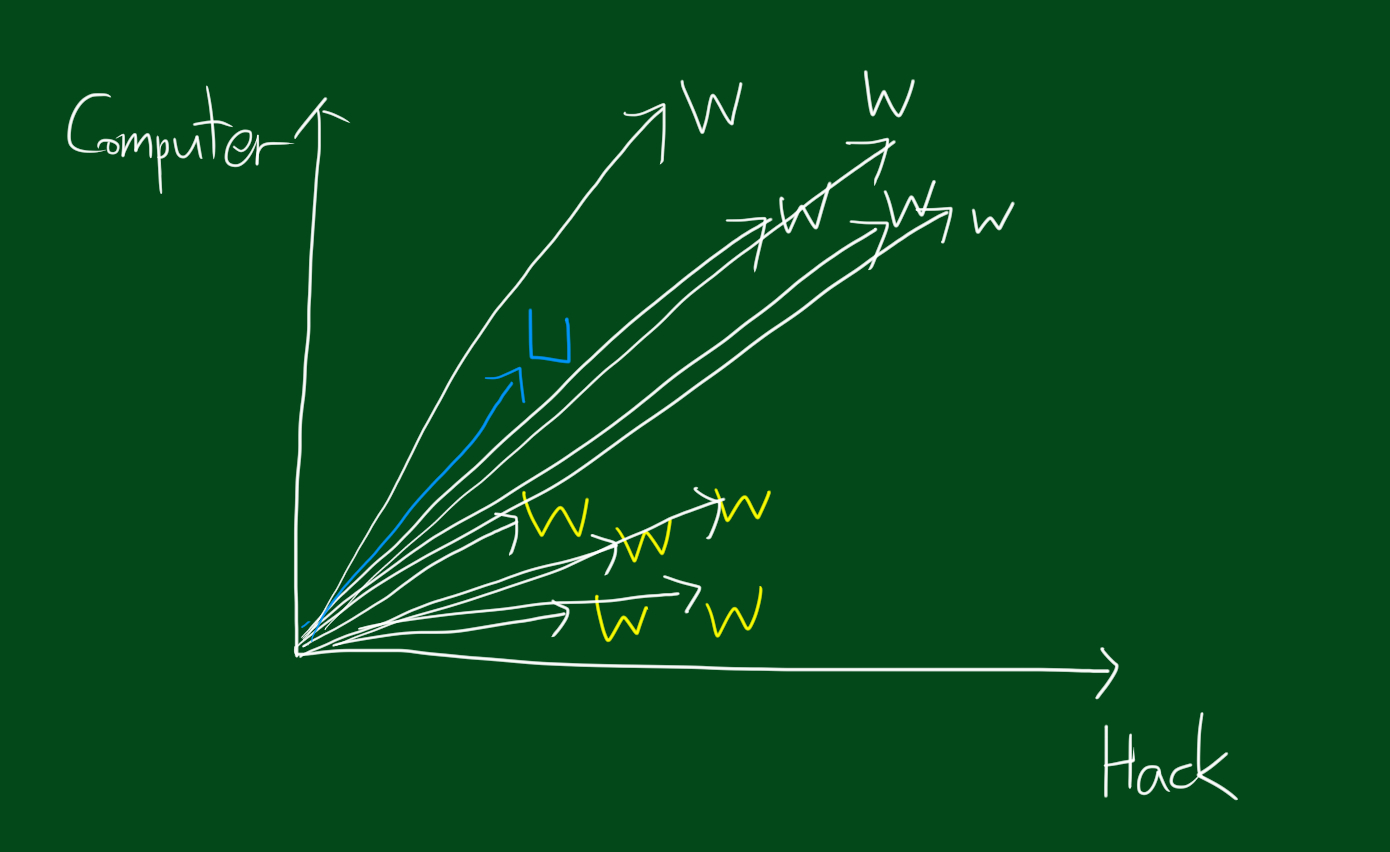 W
W
Computer
W
W
w
U
W
W
W
W
W
Hack